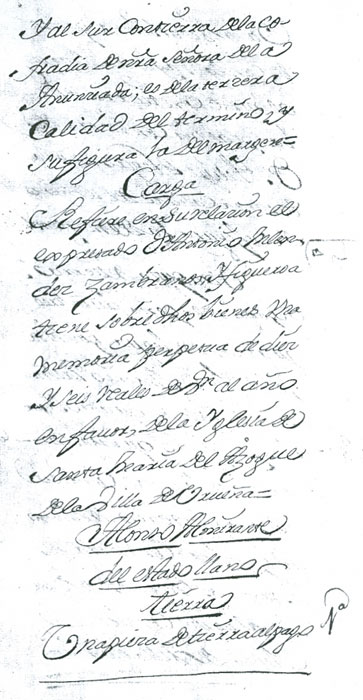 Y al Sur Con tierra de la Co-
fradia de nrã Señora de la
Anunciada; es de la tercera
Calidad del termino, y
su figura la del margen=
Carga
Refiere en su relacion el
expresado Dn Antonio
dez Zambranos Figueroa
tiene sobre dhos bienes Una
memoria perpetua de diez
Y seis reales de Vn al año
en favor, de la Yglesia de
Santa Maria del Azogue
de la Villa de Urueña=
Alonso Almirante
del estado llano
tierra
Una pieza de tierra al pago